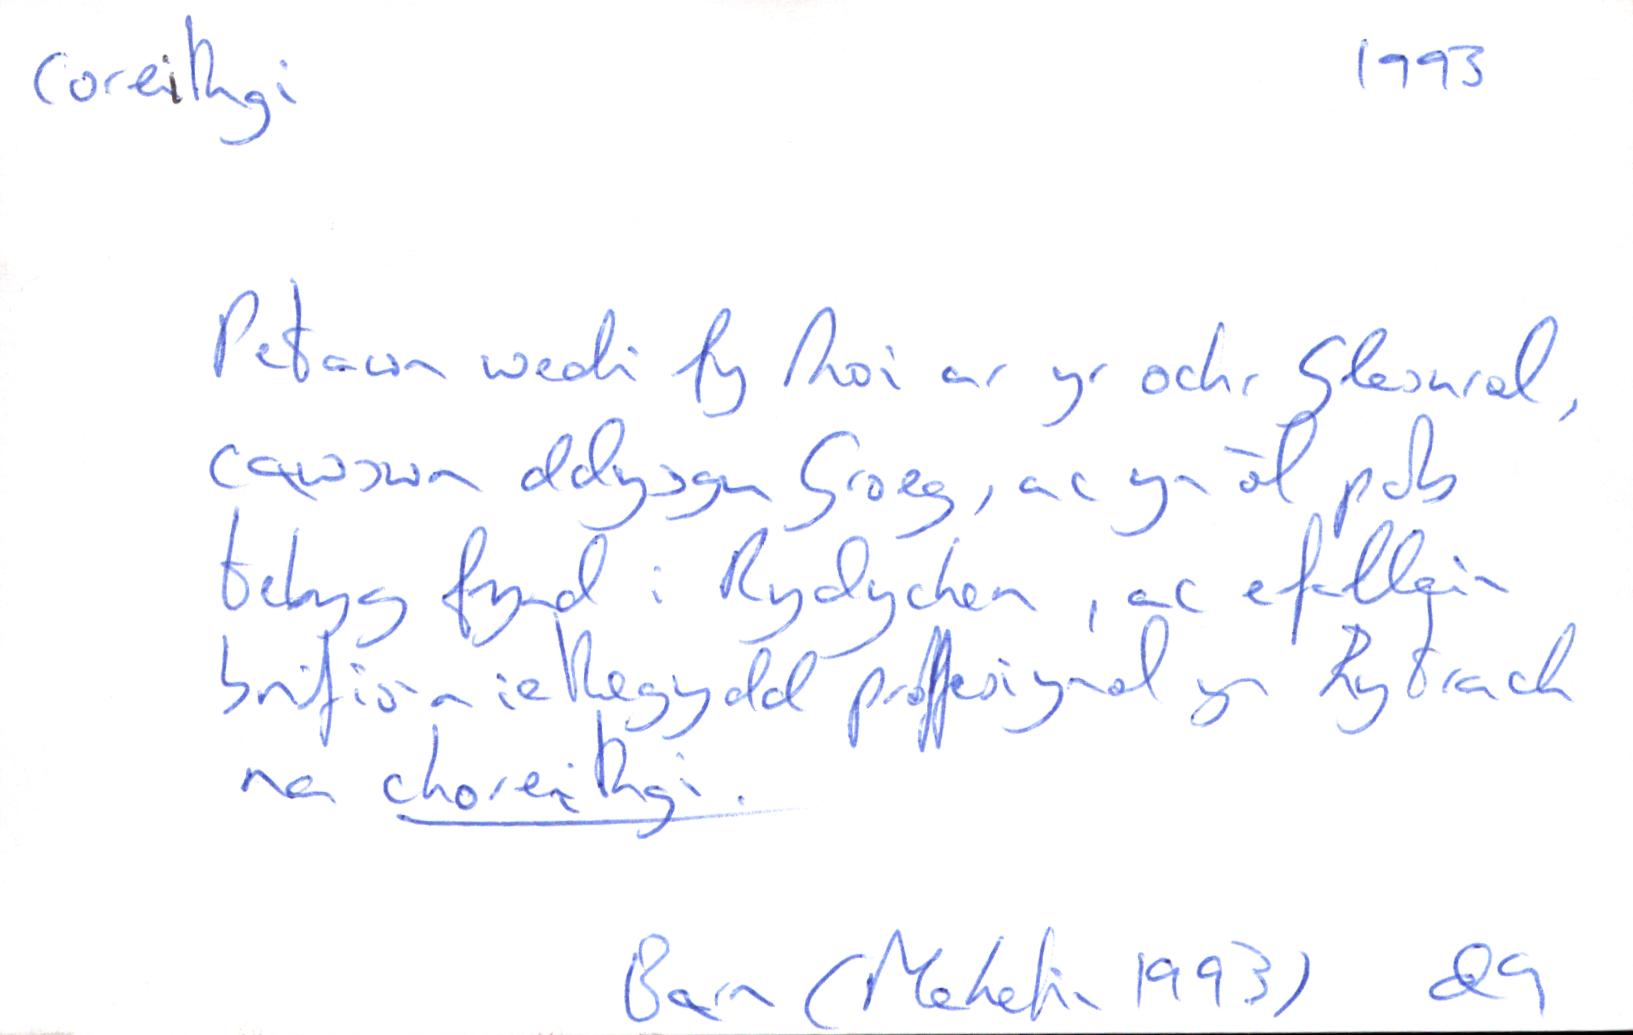 coreithgi 1993
Petawn wedi fy rhoi ar yr ochr Glasurol,
cawswn ddysgu Groeg, ac yn ôl pob
tebyg fynd i Rydychen, ac efallai'n
brifio'n ieithegydd proffesiynol yn hytrach
na choreithgi.
Barn (Mehefin 1993) 29